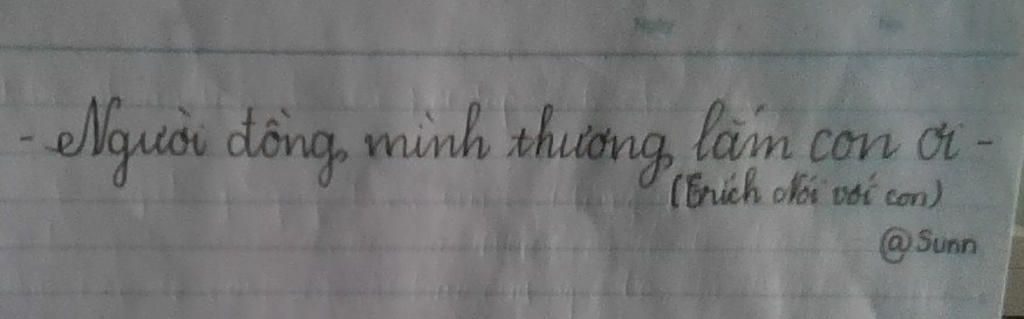 Ngày No.
- Người đồng mình thương lắm con ơi -
(Trích Nói với con)
@Sunn